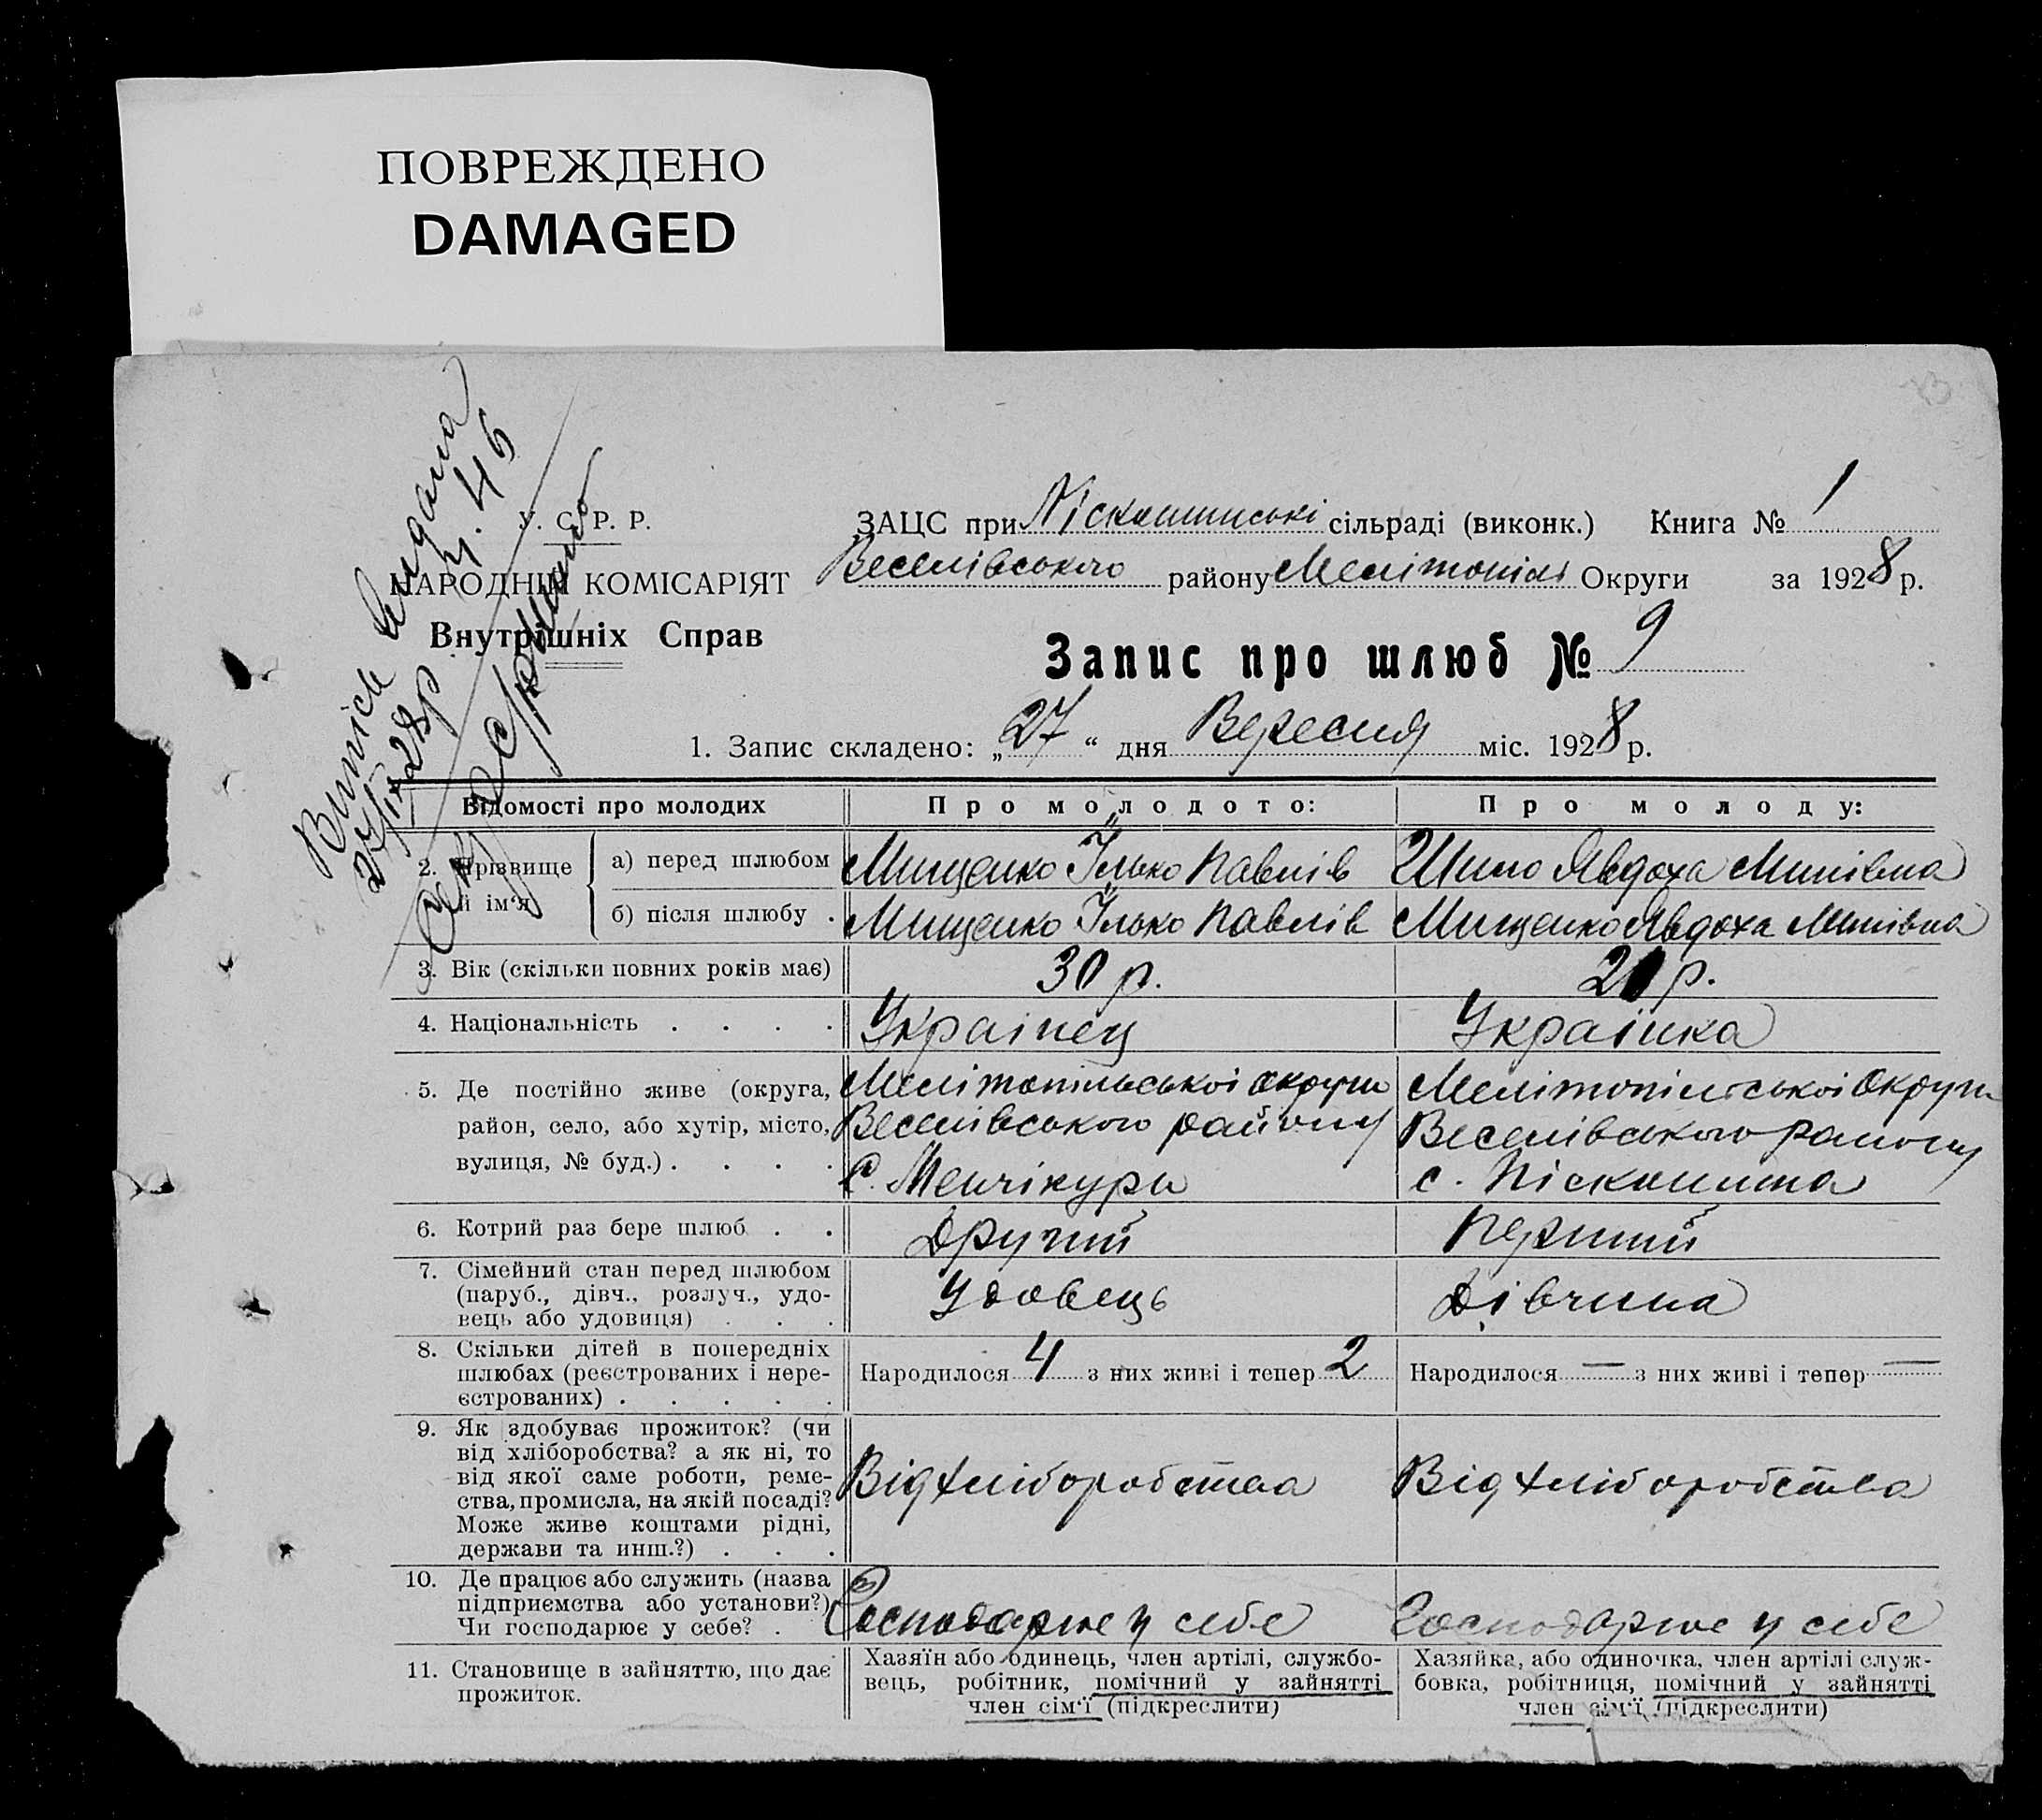 ПОВРЕЖДЕНО
DAMAGED
У. С. Р. Р.
НАРОДНІЙ КОМІСАРІЯТ
Внутрішніх Справ
ЗАЦС при Піскошинські сільраді (виконк.) Книга № 1
Веселівського району Мелітопіль Округи за 1928 р.
Запис про шлюб № 9
1. Запис складено: „27“ дня Вересня міс. 1928 р.
Випись видана
27/IX 28р
Відомості про молодих
Про молодого:
Про молоду:
2. Прізвище й ім'я
а) перед шлюбом
Мищенко Ілько Павлів
Шило Явдоха Минівна
б) після шлюбу .
Мищенко Ілько Павлів
Мищенко Явдоха Минівна
3. Вік (скільки повних років має)
30 р.
20 р.
4. Національність . . . .
Украінец
Украінка
5. Де постійно живе (округа,
район, село, або хутір, місто,
вулиця, № буд.) . . . .
Мелітопільської округи
Веселівського району
с. Менчікури
Мелітопільської Округи
Веселівського району
с. Піскошина
6. Котрий раз бере шлюб . .
Другий
Перший
7. Сімейний стан перед шлюбом
(паруб., дівч., розлуч., удо-
вець або удовиця) . . .
Удовець
Дівчина
8. Скільки дітей в попередніх
шлюбах (реєстрованих і нере-
єстрованих) . . . . .
Народилося 4 з них живі і тепер 2
Народилося — з них живі і тепер —
9. Як здобуває прожиток? (чи
від хліборобства? а як ні, то
від якої саме роботи, реме-
ства, промисла, на якій посаді?
Може живе коштами рідні,
держави та инш.?) . . .
Від хліборобства
Від хліборобства
10. Де працює або служить (назва
підприємства або установи?)
Чи господарює у себе? .
Господарює у себе
Господарює у себе
11. Становище в зайняттю, що дає
прожиток.
Хазяїн або одинець, член артілі, службо-
вець, робітник, помічний у зайнятті
член сім'ї (підкреслити)
Хазяйка, або одиночка, член артілі служ-
бовка, робітниця, помічний у зайнятті
член сім'ї (підкреслити)